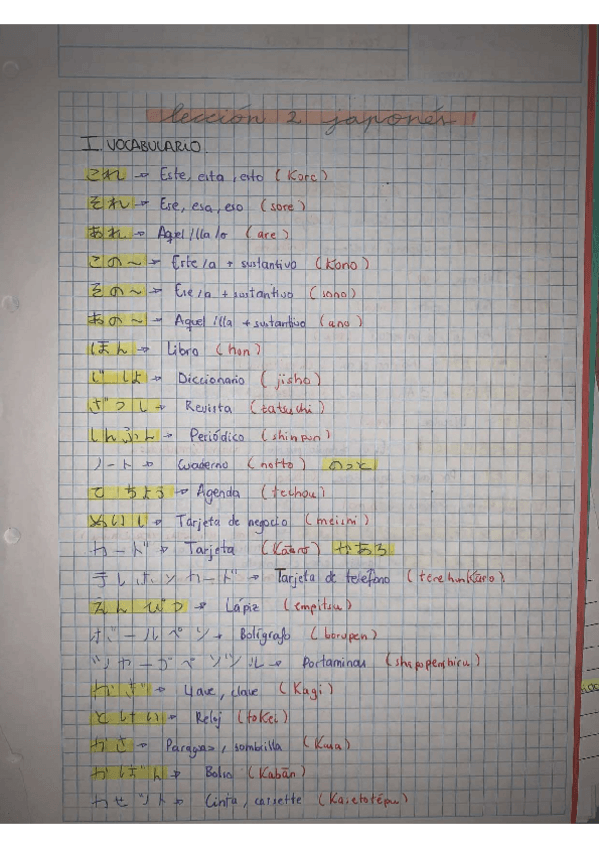 lección 2 japonés
I. VOCABULARIO.
これ → Este, esta, esto (Kore)
それ → Ese, esa, eso (sore)
あれ → Aquel/lla/lo (are)
この〜 → Este/a + sustantivo (Kono)
その〜 → Ese/a + sustantivo (sono)
あの〜 → Aquel/lla + sustantivo (ano)
ほん → Libro (hon)
じしょ → Diccionario (jisho)
ざっし → Revista (zatsuchi)
しんぶん → Periódico (shinpun)
ノート → Cuaderno (notto) のっと
てちょう → Agenda (techou)
めいし → Tarjeta de negocio (meishi)
カード → Tarjeta
テレホンカード → Tarjeta de teléfono
えんぴつ → Lápiz (empitsu)
ボールペン → Bolígrafo (borupen)
→ Portaminas
かぎ → Llave, clave (Kagi)
とけい → Reloj (tokei)
かさ → Paraguas, sombrilla
かばん → Bolso (Kabān)
→ Cinta, cassette